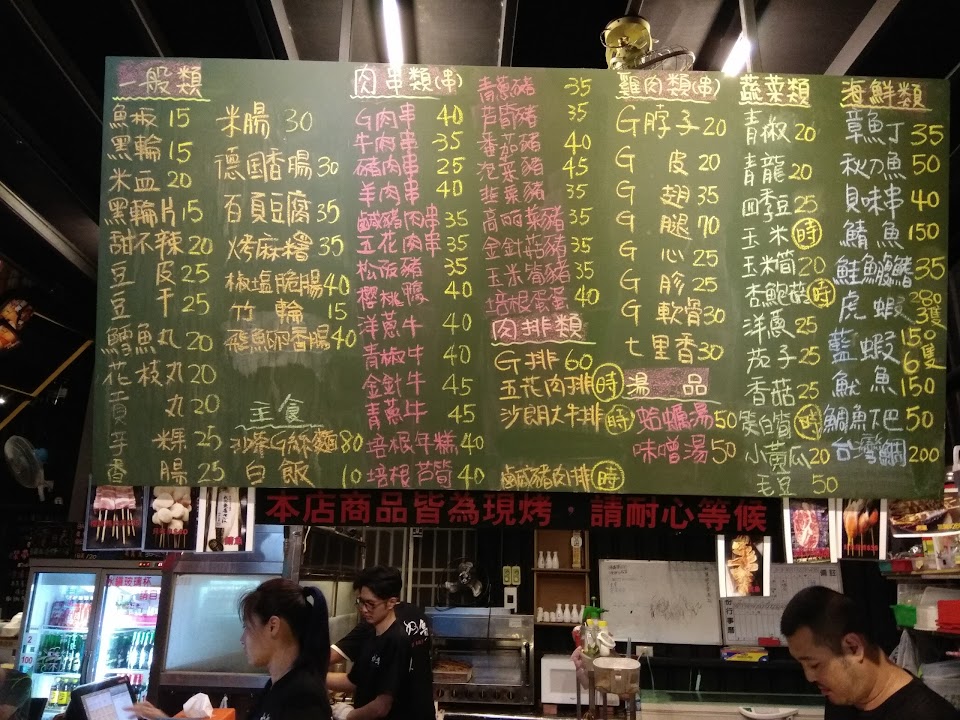 一般類
魚板 15
黑輪 15
米血 20
黑輪片 15
甜不辣 20
豆皮 25
豆干 25
鱈魚丸 20
花枝丸 20
貢丸 20
芋粿 25
香腸 25
米腸 30
德国香腸 30
百頁豆腐 35
烤麻糬 35
椒塩脆腸 40
竹輪 15
飛魚卵香腸 40
主食
沙茶G絲麵 80
白飯 10
肉串類(串)
G肉串 40
牛肉串 35
豬肉串 25
羊肉串 40
鹹豬肉串 35
五花肉串 35
松阪豬 35
櫻桃鴨 40
洋蔥牛 40
青椒牛 40
金針牛 45
青蔥牛 45
培根年糕 40
培根芦筍 40
青蔥豬 35
芦筍豬 35
番茄豬 40
泡菜豬 45
韭菜豬 35
高丽菜豬 35
金針菇豬 35
玉米筍豬 35
培根蛋蔥 40
肉排類
G排 60
五花肉排 時
沙朗大牛排 時
鹹豬肉排 時
雞肉類(串)
G脖子 20
G皮 20
G翅 35
G腿 70
G心 25
G胗 25
G軟骨 30
七里香 30
湯品
蛤蠣湯 50
味噌湯 50
蔬菜類
青椒 20
青龍 20
四季豆 25
玉米 時
玉米筍 20
杏鮑菇 時
洋蔥 25
茄子 25
香菇 25
筊白筍 時
小黃瓜 20
毛豆 50
海鮮類
章魚丁 35
秋刀魚 50
貝味串 40
鯖魚 150
鮭魚鰭 35
虎蝦 280 3隻
藍蝦 150 6隻
魷魚 150
鯛魚下巴 50
台灣鯛 200
本店商品皆為現烤，請耐心等候